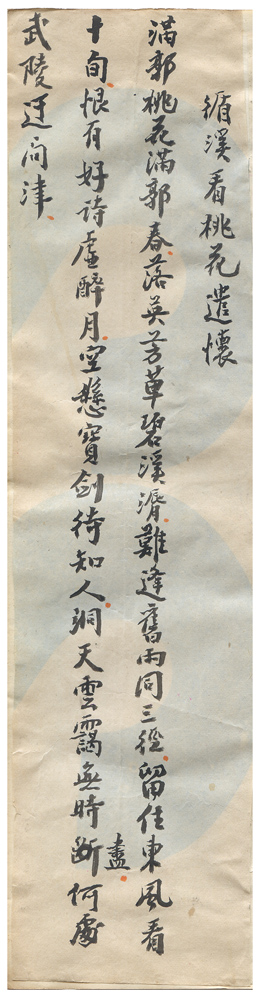 循溪看桃花遣懷
滿郭桃花滿郭春落英芳草碧溪漘難逢舊雨同三徑留住東風看
十旬恨有好詩虛醉月空懸寶劍待知人洞天雲靄無時斷何處
盡
武陵迂問津